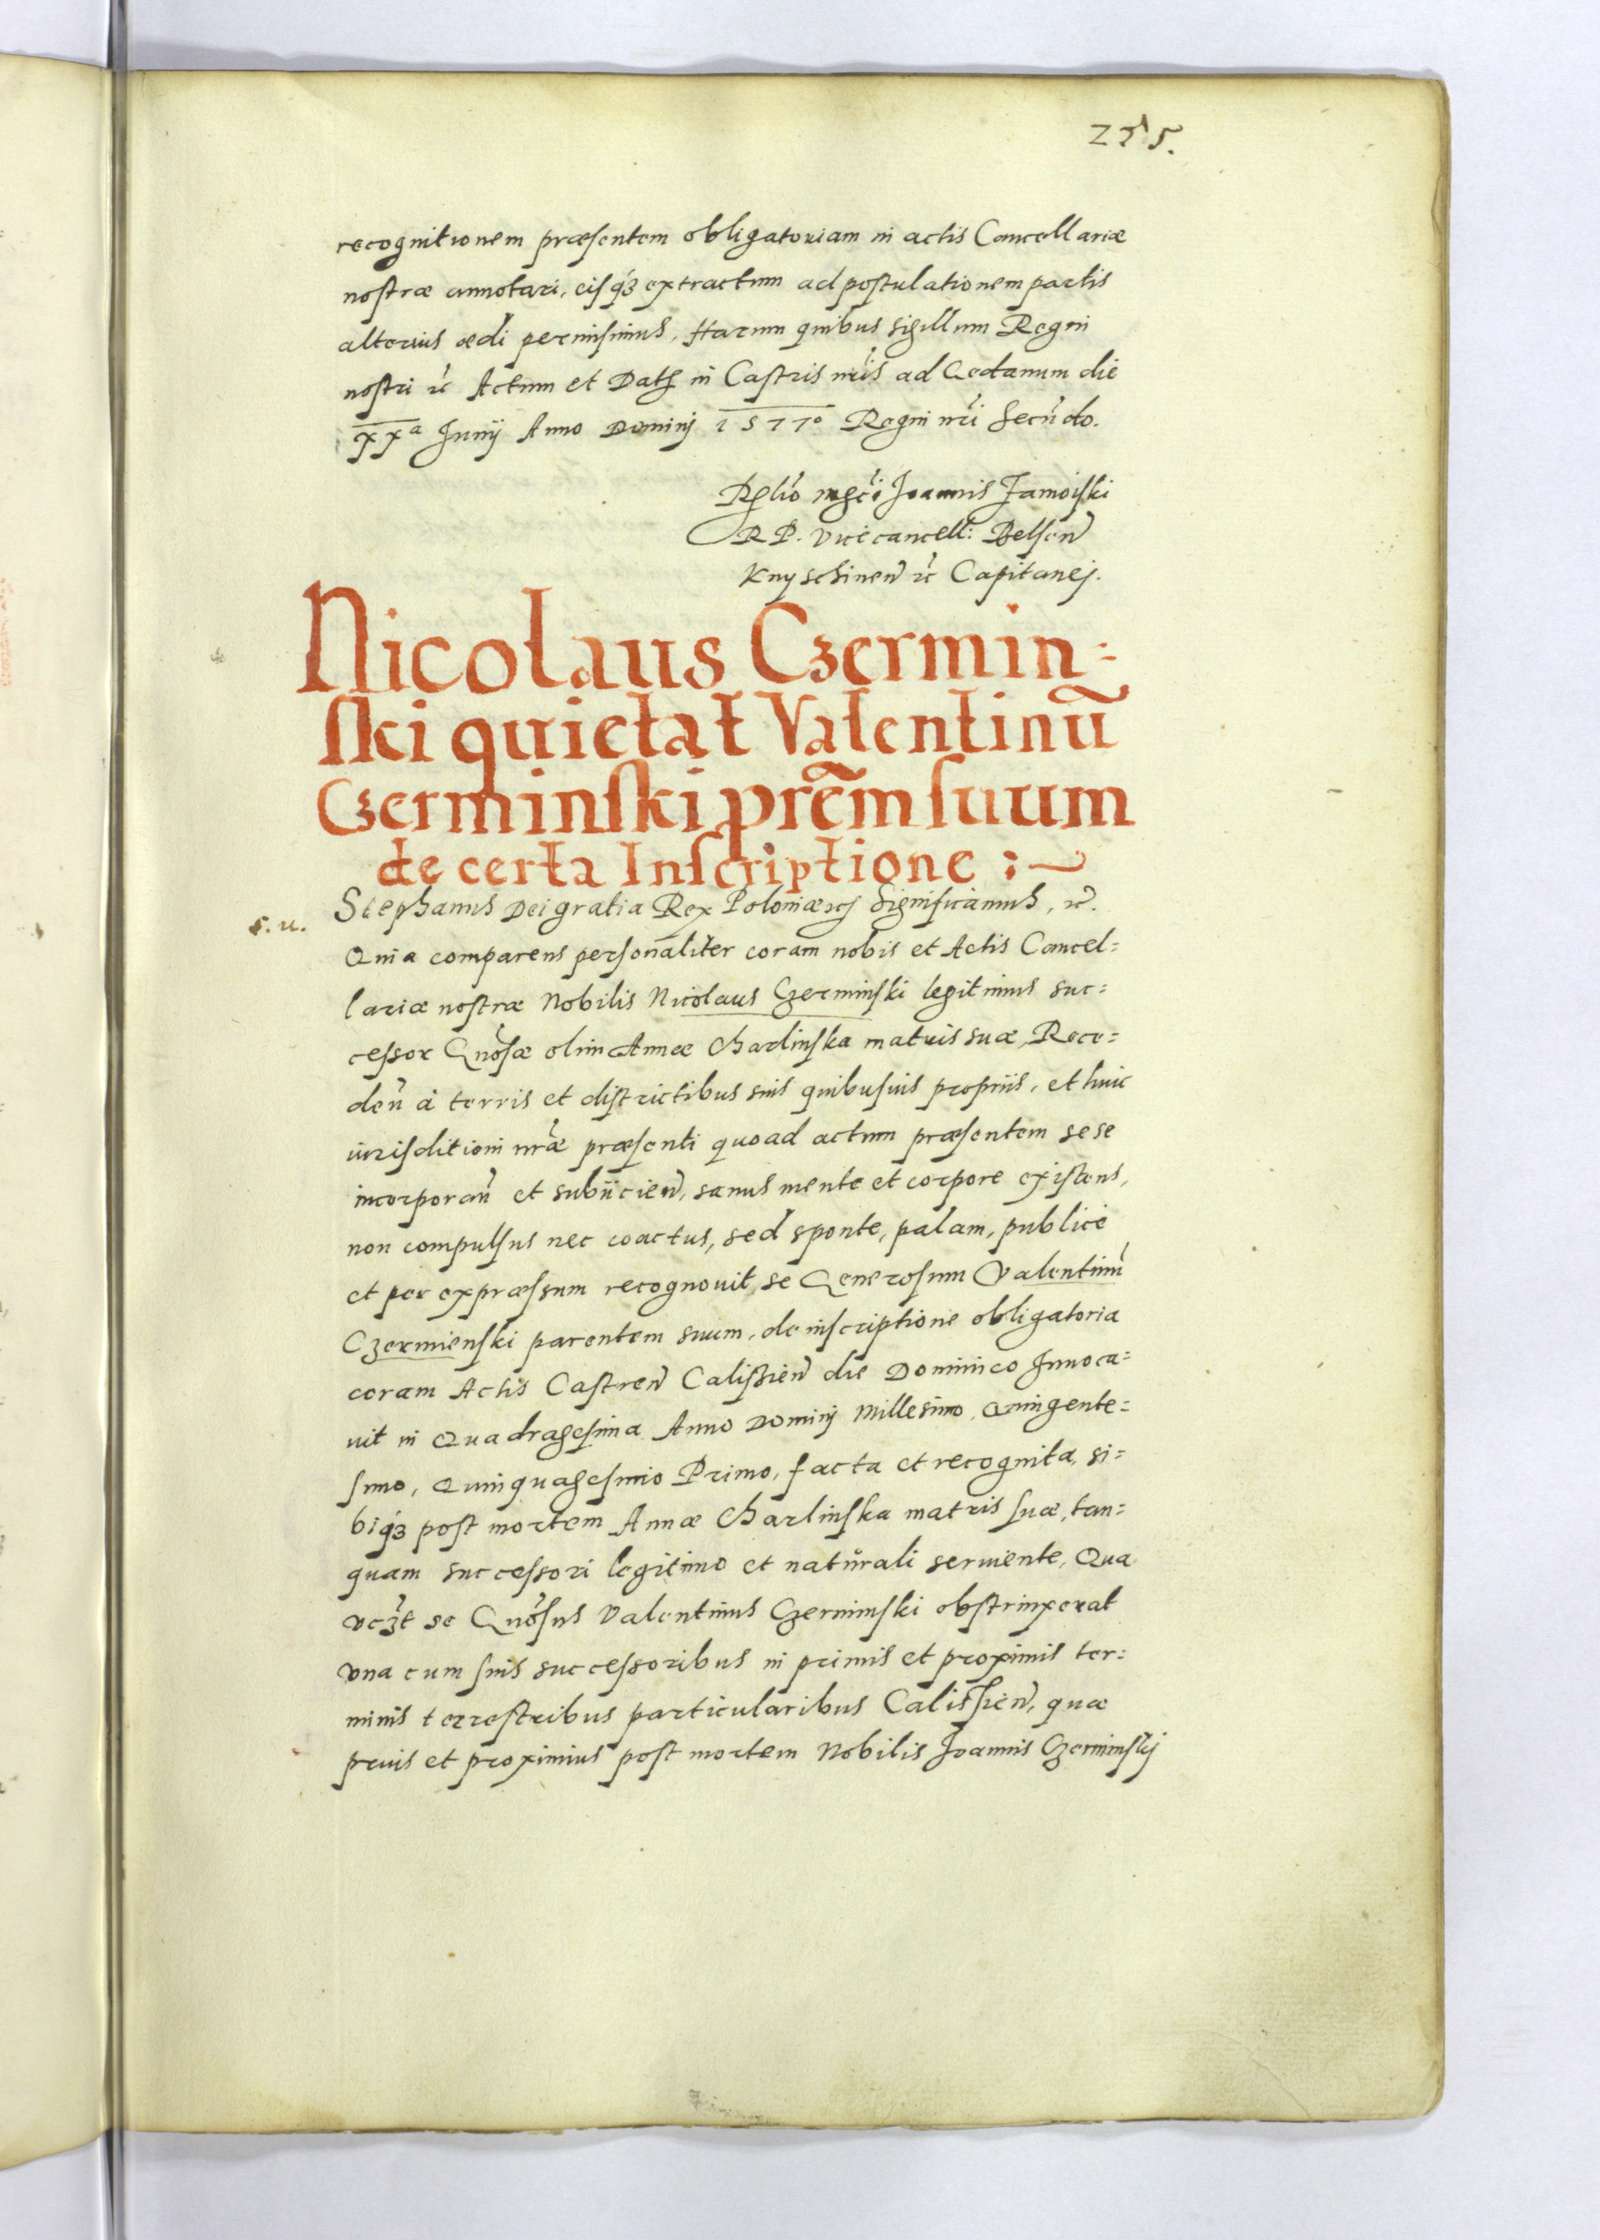 255.
recognitionem præsentem obligatoriam in actis Cancellariæ
nostræ annotari, eisq́ꝫ extractum ad postulationem partis
alterius ædi permisimus. Harum quibus sigillum Regni
nostri ꝛc Actum et Datꝭ in Castris nr̃is ad Gedanum die
XXa Junij Anno Dominj 1577o Regni nr̃i Secũdo.
Rel̃io mgc̃i Joannis Zamoiski
R P. Vicecancell: Belsen̄
Knyschinen̄ ꝛc Capitanej.
Nicolaus Czermin=
ski quietat Valentinū
Czerminski prēm suum
de certa Inscriptione :~
s. u.
Stephanus Dei gratia Rex Poloniæ ꝛcꝭ Significamus, ꝛc.
Quia comparens personaliter coram nobis et Actis Cancel=
lariæ nostræ Nobilis Nicolaus Czerminski legitimus suc=
cessor Gñosæ olim Annæ Charlinska matris suæ, Rece=
den̄ à terris et districtibus suis quibusuis proprijs, et huic
iurisditioni nr̃æ præsenti quoad actum præsentem sese
incorporan̄ et subijcien̄, sanus mente et corpore existens,
non compulsus nec coactus, sed sponte, palam, publicè
et per expræssum recognouit, se Generosum Valentinū
Czermienski parentem suum, de inscriptione obligatoria
coram Actis Castren̄ Calissien̄ die Dominico Inuoca=
uit in Quadragesima Anno Dominj Millesimo, Quingente=
simo, Quinquagesimo Primo, facta et recognita, si=
biq́ꝫ post mortem Annæ Charlinska matris suæ, tan=
quam successori legitimo et naturali seruiente, Qua
vcꝫt se Gñosus Valentinus Czerminski obstrinxerat
vna cum suis successoribus in primis et proximis ter=
minis terrestribus particularibus Calissien̄, quæ
prius et proximius post mortem Nobilis Joannis Czerminskj